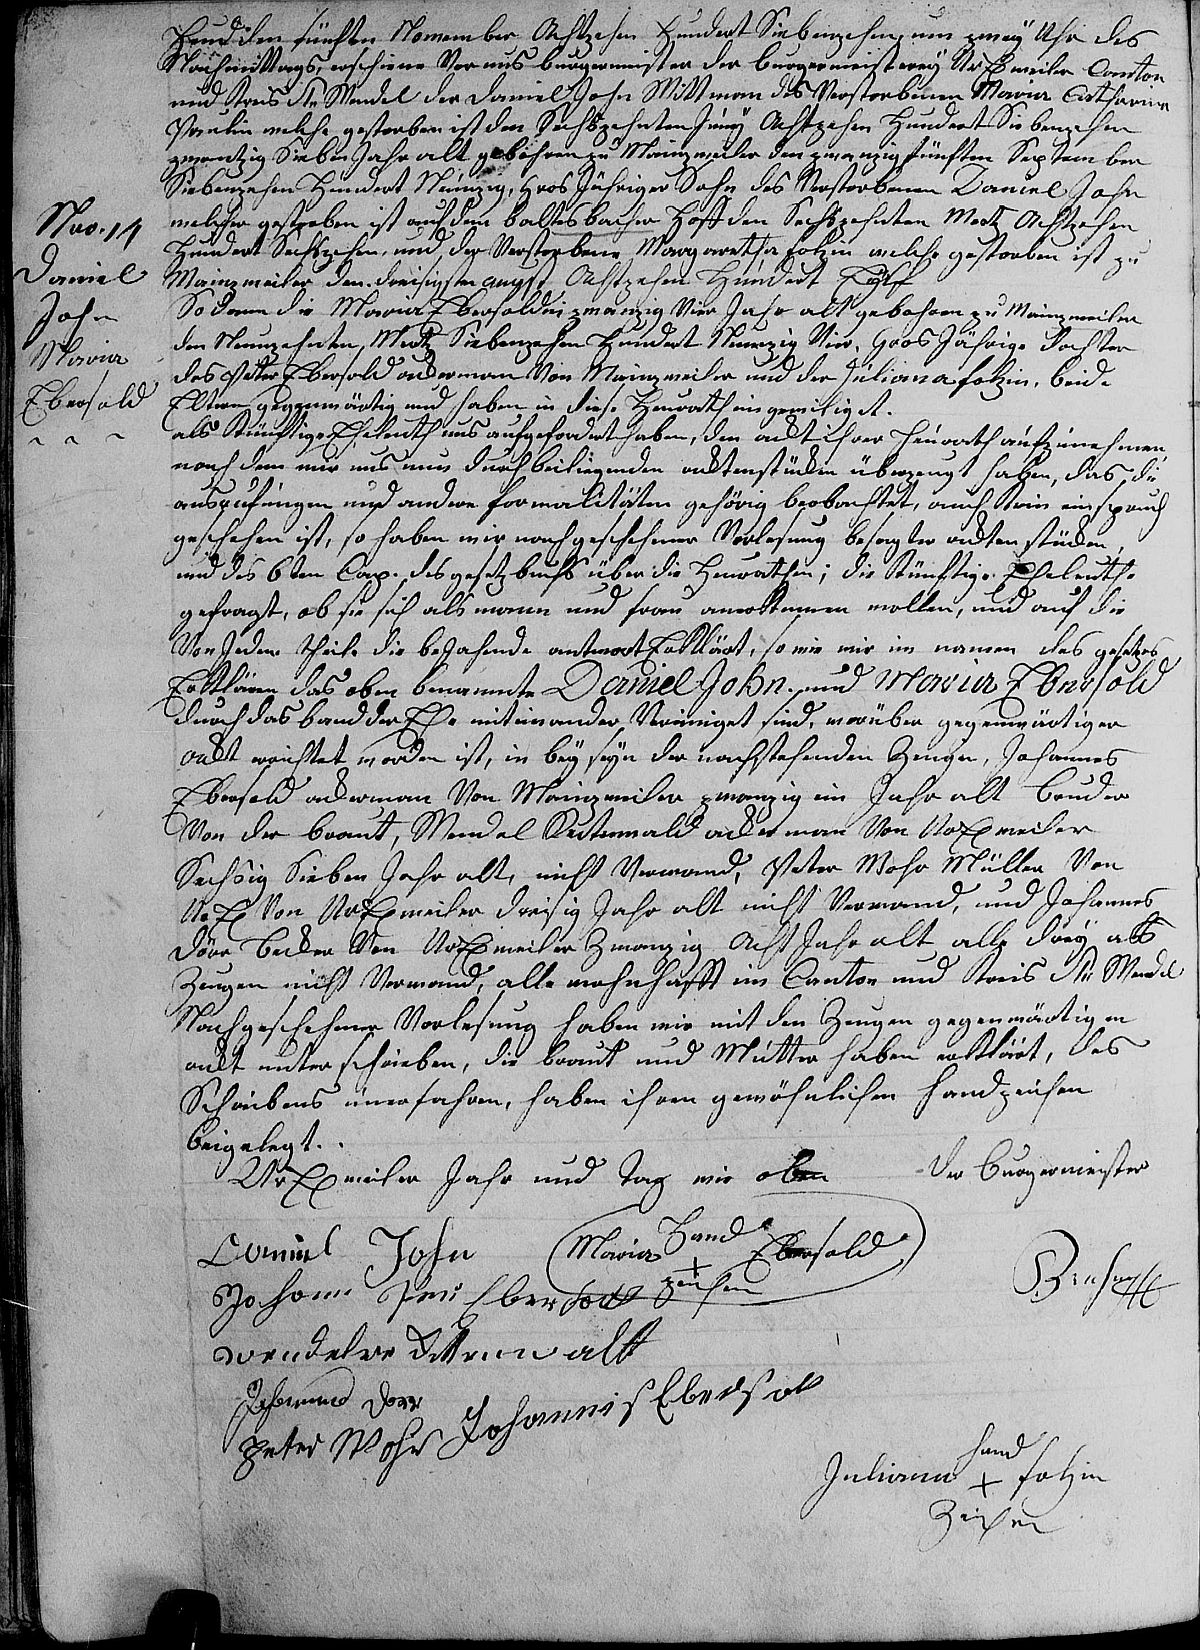 Heud den fünften November Achtzehen Hundert Siebenzehen, um zweÿ Uhr des
Nachmittags, erschiene Vor uns burgermeister der burgermeistereÿ UrExweiler Canton
und Kreis St. Wendel der Daniel John Wittman des Verstorbenen Maria Catharina
Paulin welche gestorben ist den Sechszehnten Junÿ Achtzehen Hundert Siebenzehen
zwantzig Sieben Jahr alt gebohren zu Mainzweiler den zwanzig fünften September
Siebenzehen Hundert Neunzig, Gros Jähriger Sohn des Verstorbenen Daniel John
welcher gestorben ist auf dem baltesbacher Hoff den Sechszehnten Mertz Achtzehen
Hundert Sechszehen, und der Verstorbene Margaretha folzin welche gestorben ist zu
Mainzweiler den dreisigsten augst Achtzehen Hundert Eölf
So dann die Maria Ebersoldin zwanzig Vier Jahr alt gebohren zu Mainzweiler
den Neunzehnten Mertz Siebenzehen Hundert Neunzig Vier, Gros Jährige dochter
des Peter Ebersold ackerman Von Mainzweiler und der Juliana folzin, beide
Eltern gegenwärtig und haben in diese Heurath eingewiliget.
als Künftige Eheleuth uns aufgefordert haben, den ackt ihrer Heurath aufzunehmen,
nach dem wir uns nun durch beiliegenden acktenstücken überzeugt haben, das die
ausrufungen und andere formalitäten gehörig beobachtet, auch kein einspruch
geschehen ist, so haben wir nach geschehener Vorlesung besagter acktenstücken,
und des 6ten Cap. des gesetzbuchs über die Heurathen; die Künftige Eheleuthe
gefragt, ob sie sich als mann und frau anerkennen wollen, und auf die
Von Jedem Theile die bejahende antwort Erklärt, so wie wir im namen des gesetzes
Erklären das oben benannte Daniel John und Maria Ebersold
durch das band der Ehe miteinander Vereiniget sind, worüber gegenwärtiger
ackt errichtet worden ist, in beÿ seÿn der nachstehenden Zeugen, Johannes
Ebersold ackerman Von Mainzweiler zwanzig ein Jahr alt bruder
Von der braut, Wendel Kuttenwald ackerman Von UrExweiler
Sechsig Sieben Jahr alt, nicht Verwand, Peter Mohr Müller Von
UrEx Von UrExweiler dreisig Jahr alt nicht Verwand, und Johannes
dörr becker Von UrExweiler Zwanzig Acht Jahr alt alle dreÿ als
Zeugen nicht Verwand, alle wohnhafft im Canton und Kreis St. Wendel
Nach geschehener Vorlesung haben wir mit den Zeugen gegenwärtigen
ackt unterschrieben, die braut und Mutter haben erklärt, des
Schreibens unerfahren, haben ihren gewöhnlichen Handzeichen
beigelegt.
UrExweiler Jahr und Tag wie oben der burgermeister
Nro. 14
Daniel
John
Maria
Ebersold
Daniel John
Maria Hand + zeichen Ebersold
Johann Ebersold
wendel
Johannes Dörr
Peter Mohr Johannes Ebersold
Juliana Hand + Zeichen folzin